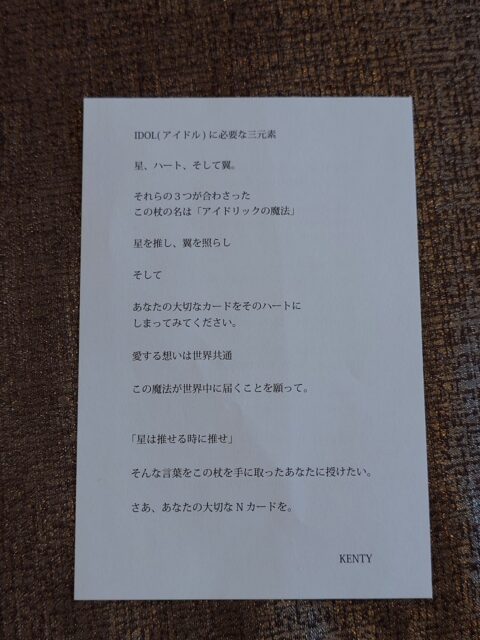 IDOL(アイドル)に必要な三元素
星、ハート、そして翼。
それらの3つが合わさった
この杖の名は「アイドリックの魔法」
星を推し、翼を照らし
そして
あなたの大切なカードをそのハートに
しまってみてください。
愛する想いは世界共通
この魔法が世界中に届くことを願って。
「星は推せる時に推せ」
そんな言葉をこの杖を手に取ったあなたに授けたい。
さあ、あなたの大切なNカードを。
KENTY